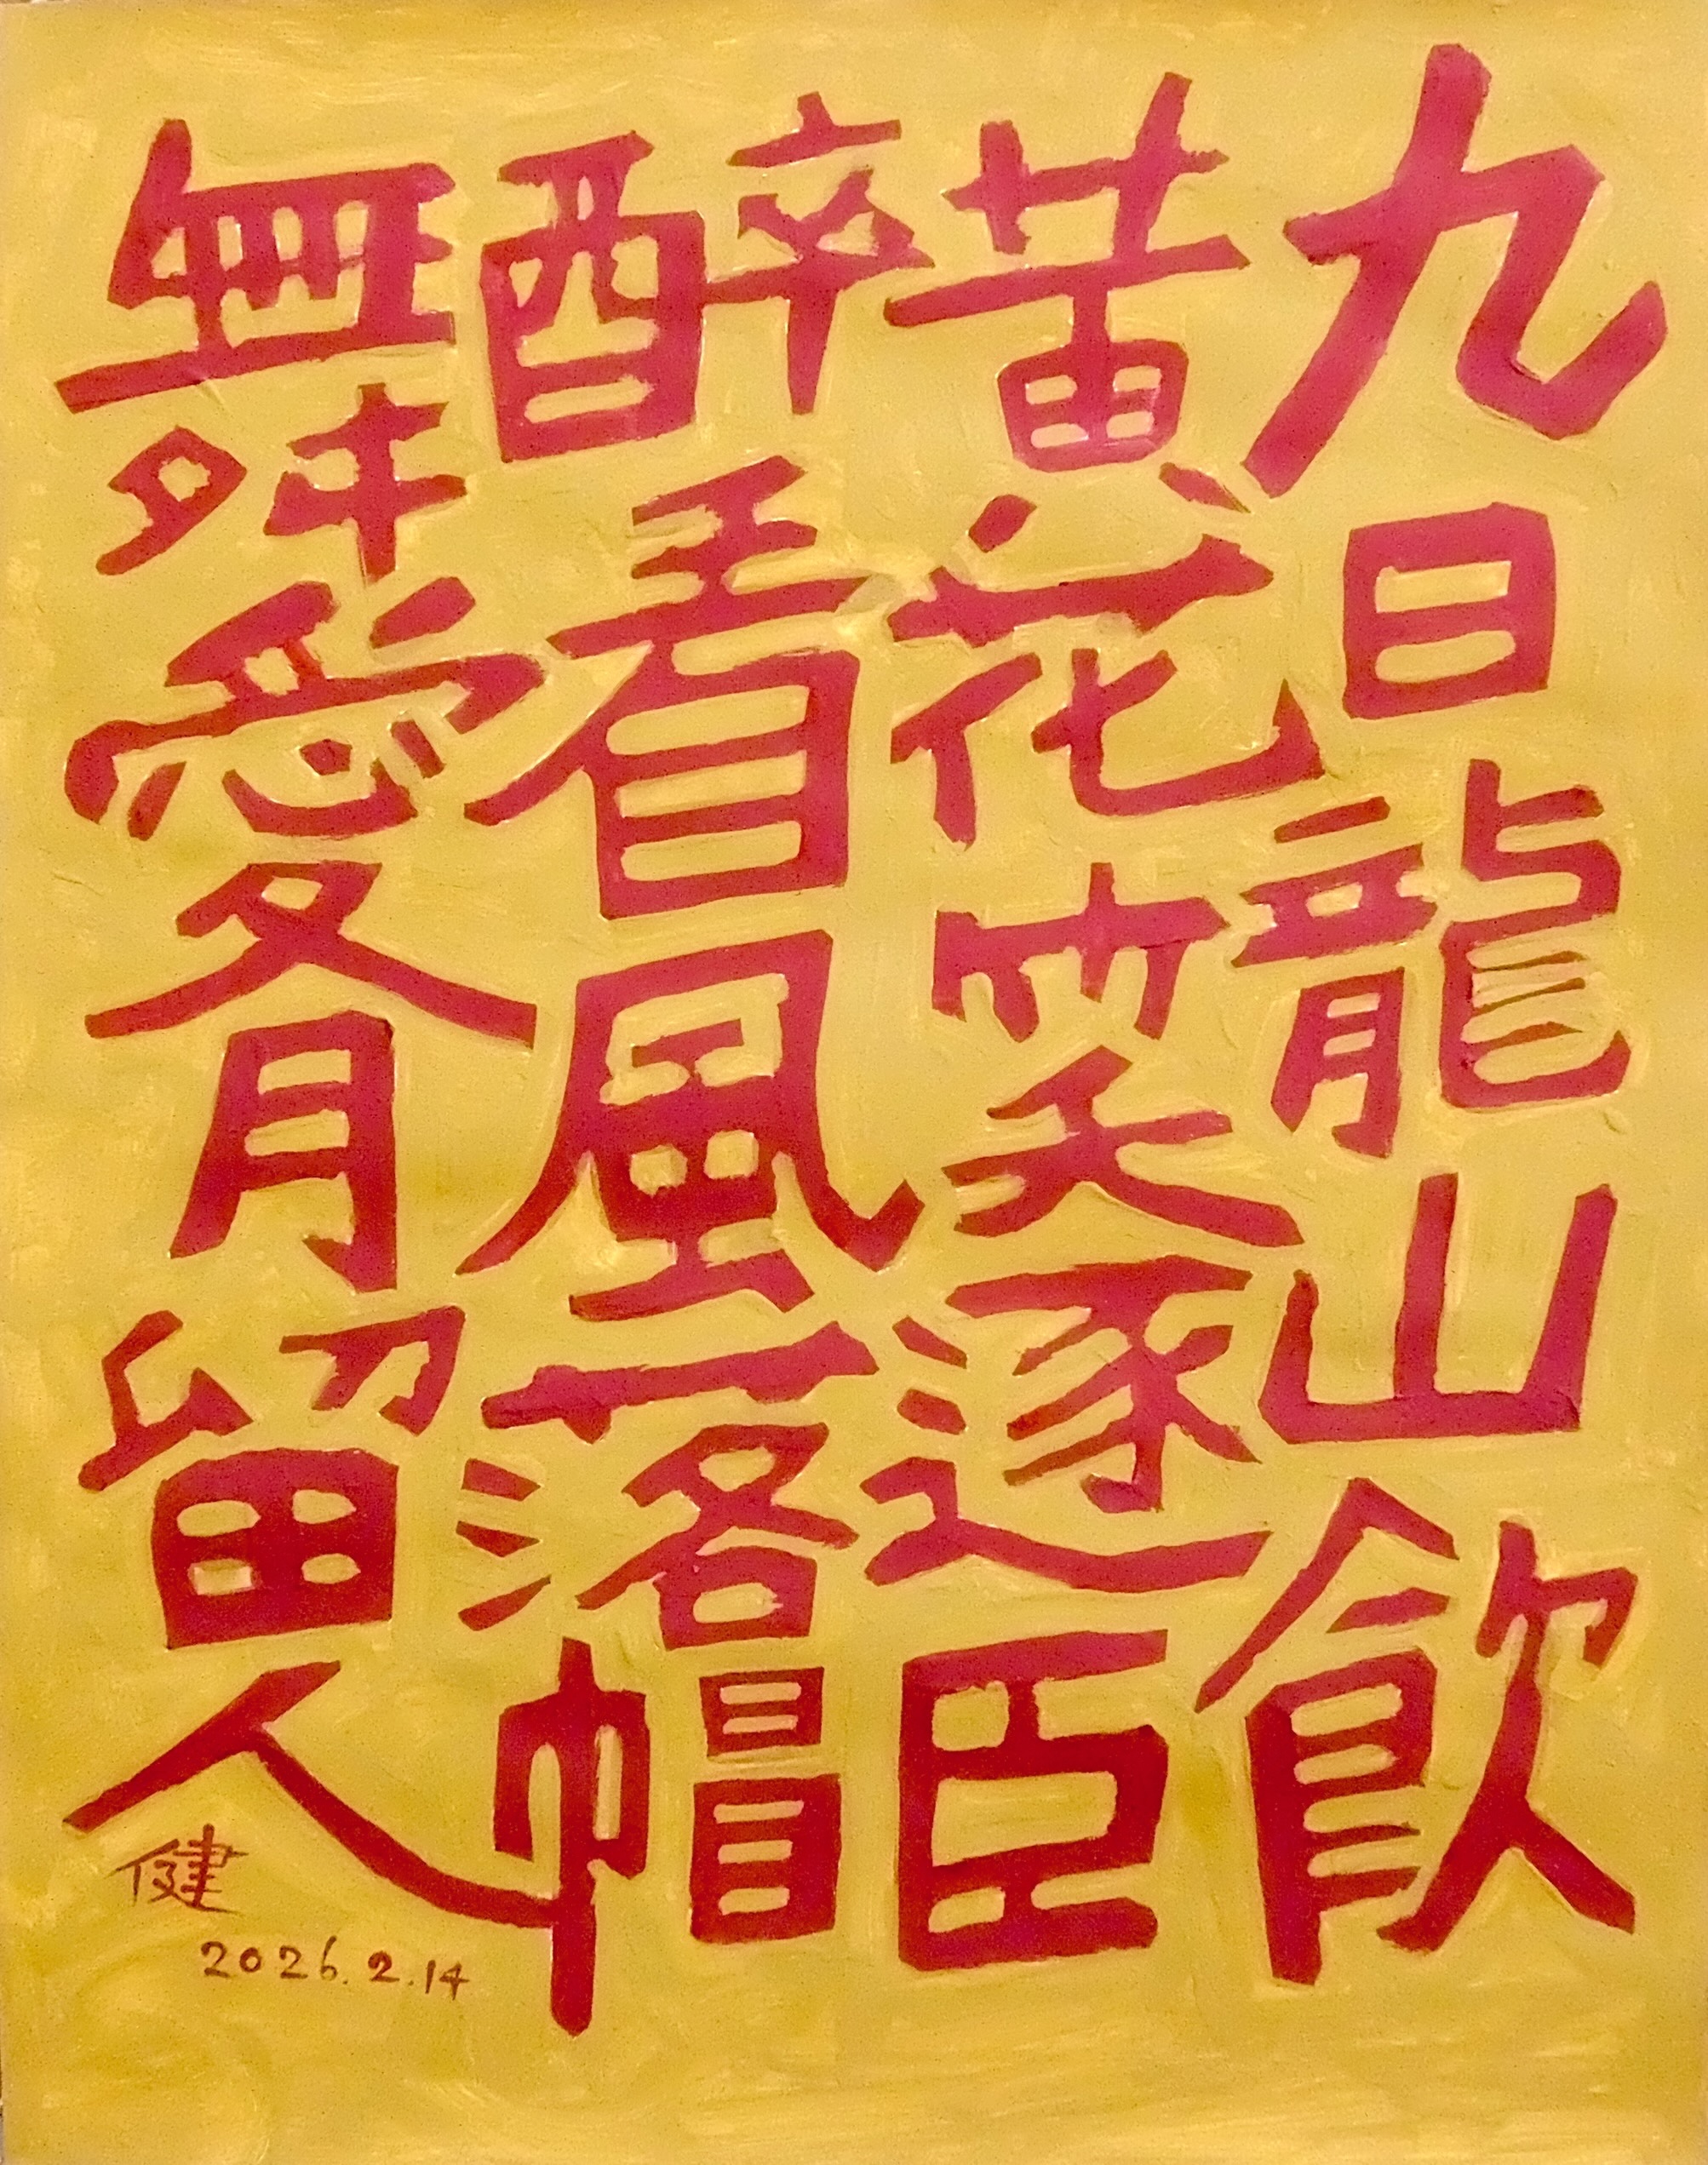 九日龍山飲
黄花笑逐臣
醉看風落帽
舞愛月留人
健
2026.2.14